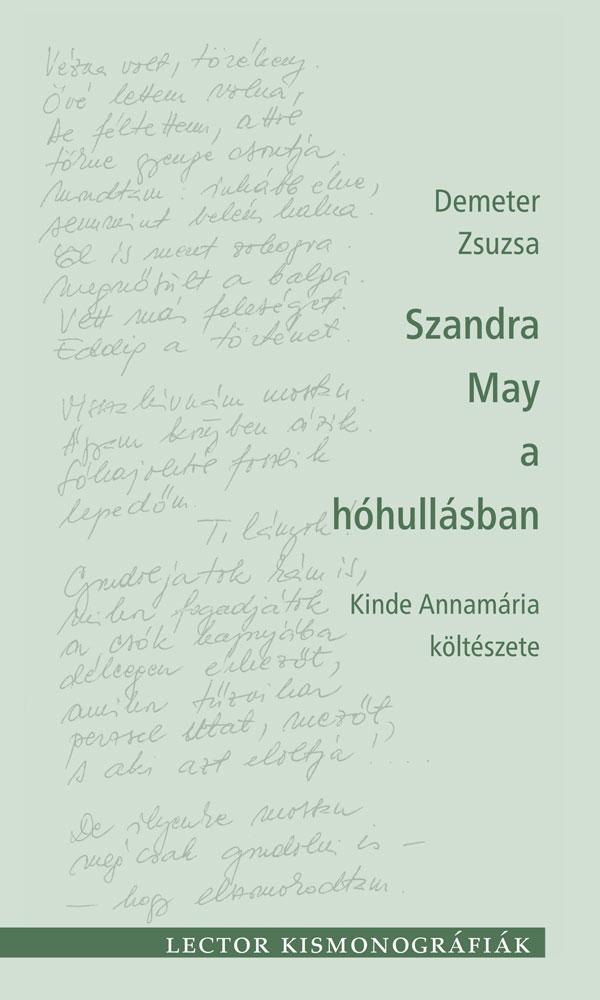 Vézna volt, törékeny.
Övé lettem volna,
de féltettem, attól
törne gyenge csontja.
Mondtam: inkább élne,
semmint belém halna.
El is ment zokogva.
Megnősült a balga.
Vett más feleséget.
Eddig a történet.
Visszahívnám mostan.
Ágyam könnyben ázik.
Sóhajoktól foszlik
lepedőm.
Ti lányok!
Gondoljatok rám is,
mikor fogadjátok
a csók hajnyjába
délcegen érkezőt,
amikor tűzvihar
perzsel utat, mezőt,
s aki azt eloltja!....
De ilyenre mostan
még csak gondolni is –
– hogy elszomorodtam.
Demeter
Zsuzsa
Szandra
May
a
hóhullásban
Kinde Annamária
költészete
LECTOR KISMONOGRÁFIÁK